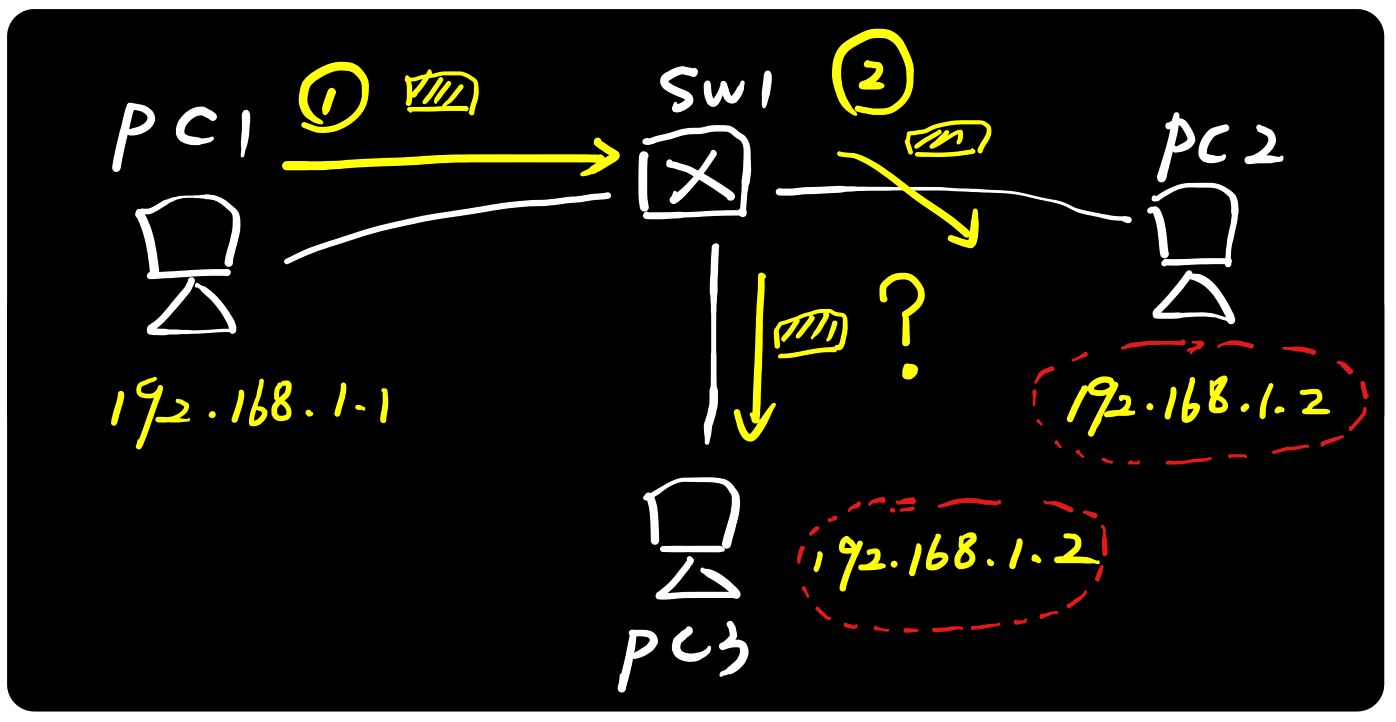 PC1
①
SW1
②
PC2
192.168.1.1
?
192.168.1.2
192.168.1.2
PC3